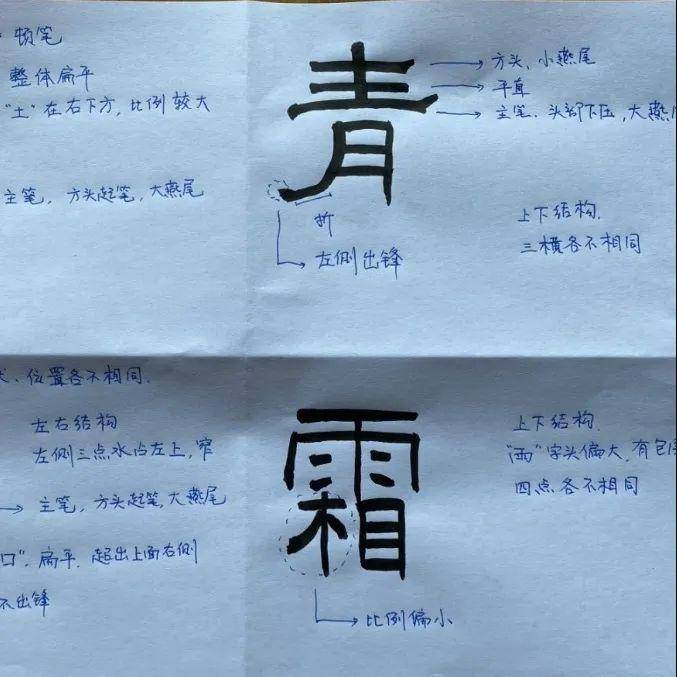 顿笔
整体扁平
"土"在右下方,比例较大
主笔,方头起笔,大燕尾
青
方头、小燕尾
平直
主笔、头部下压,大燕
折
左侧出锋
上下结构.
三横各不相同
、位置各不相同.
左右结构
左侧三点水占左上,窄
主笔,方头起笔,大燕尾
口",扁平,超出上面右侧
不出锋
霜
上下结构.
"雨"字头偏大,有包
四点各不相同
比例偏小